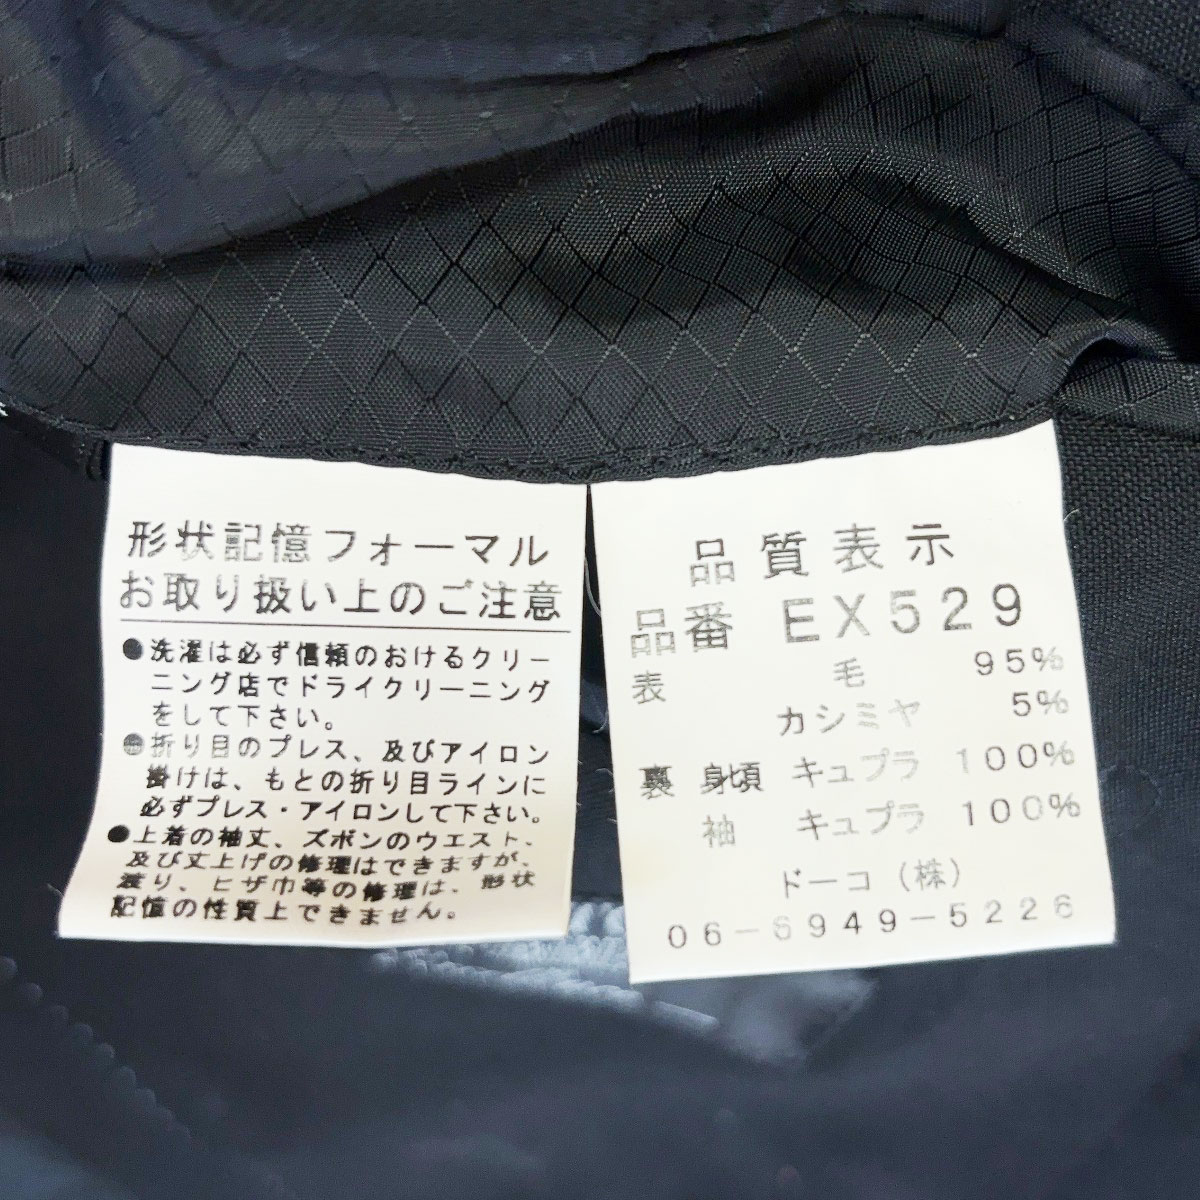 形状記憶フォーマル
お取り扱い上のご注意
●洗濯は必ず信頼のおけるクリー
ニング店でドライクリーニング
をして下さい。
●折り目のプレス、及びアイロン
掛けは、もとの折り目ラインに
必ずプレス・アイロンして下さい。
●上着の袖丈、ズボンのウエスト、
及び丈上げの修理はできますが、
渡り、ヒザ巾等の修理は、形状
記憶の性質上できません。
品質表示
品番 EX529
表 毛 95%
カシミヤ 5%
裏 身頃 キュプラ 100%
袖 キュプラ 100%
ドーコ(株)
06-6949-5226